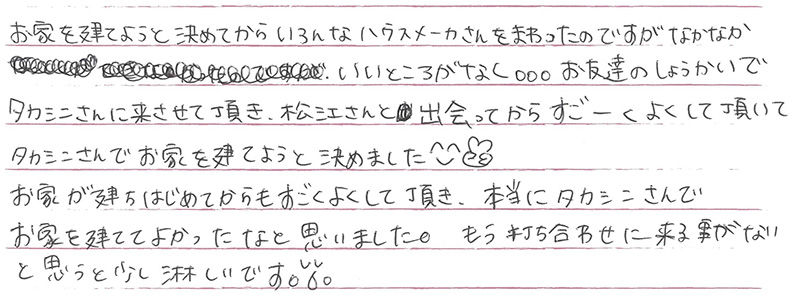 お家を建てようと決めてからいろんなハウスメーカさんをまわったのですがなかなか
いいところがなく。。。お友達のしょうかいで
タカシニさんに来させて頂き、松江さんと出会ってからすごーくよくして頂いて
タカシニさんでお家を建てようと決めました
お家が建ちはじめてからもすごくよくして頂き、本当にタカシニさんで
お家を建ててよかったなと思いました。もう打ち合わせに来る事がない
と思うと少し淋しいです。